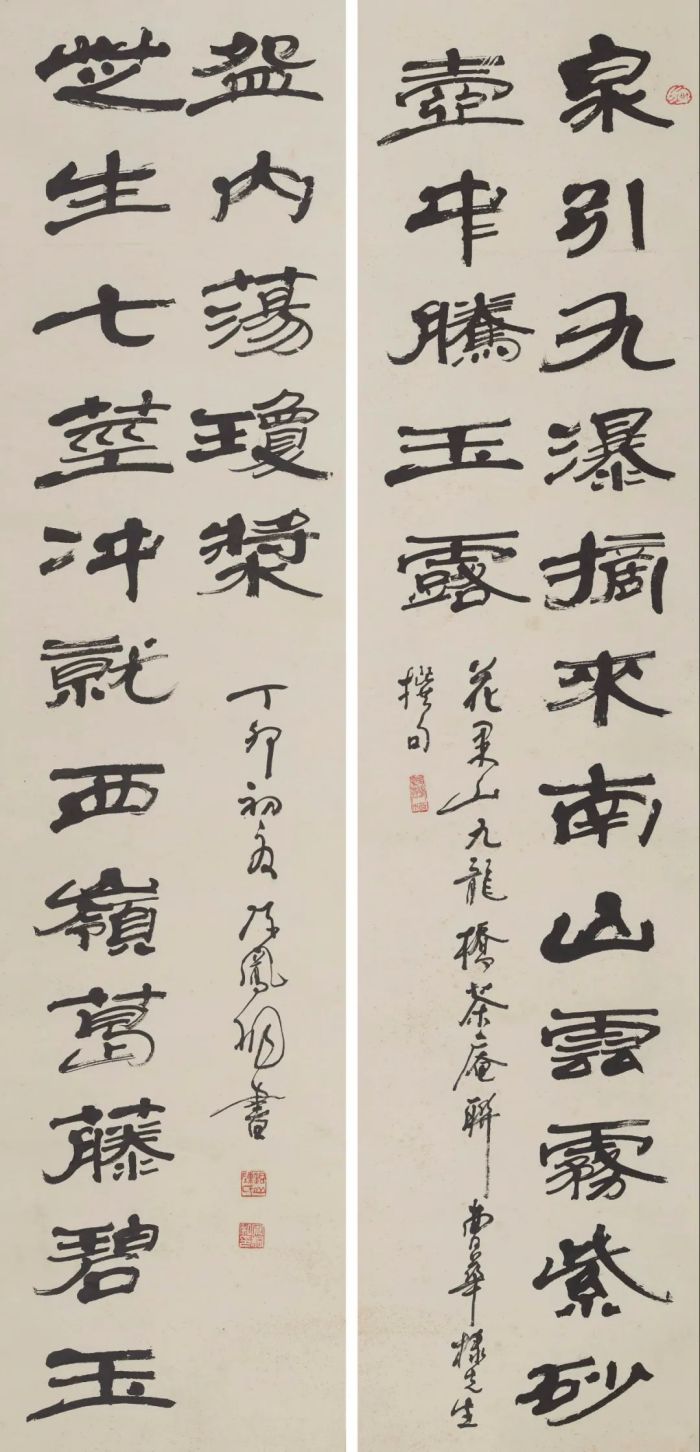 泉引九瀑摘來南山雲霧紫砂
壺中騰玉露
花果山九龍橋茶庵聯 曹華樑先生
撰句
芝生七莖沖就西嶺葛藤碧玉
盌内蕩瓊漿
丁卯初夏陳鳳桐書